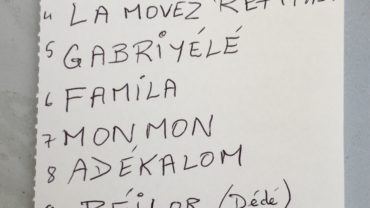 4 LA MOVEZ
5 GABRIYÉLÉ
6 FAMÍLA
7 MONMON
8 ADÉKALOM
(Dédé)